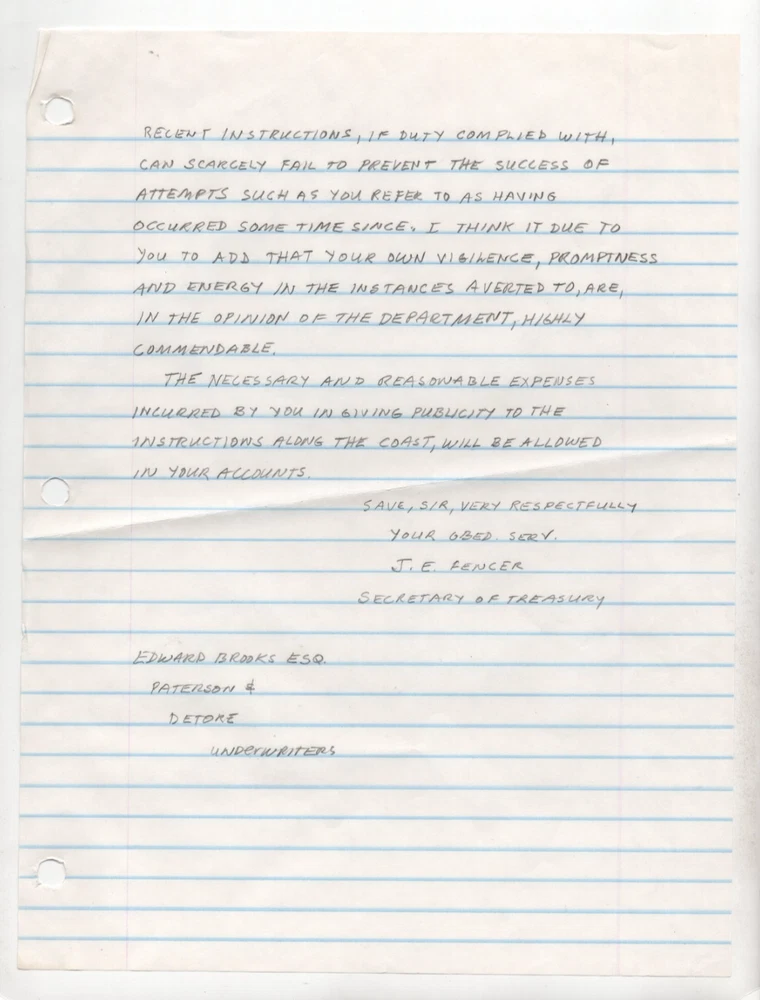 RECENT INSTRUCTIONS, IF DUTY COMPLIED WITH,
CAN SCARCELY FAIL TO PREVENT THE SUCCESS OF
ATTEMPTS SUCH AS YOU REFER TO AS HAVING
OCCURRED SOME TIME SINCE. I THINK IT DUE TO
YOU TO ADD THAT YOUR OWN VIGILENCE, PROMPTNESS
AND ENERGY IN THE INSTANCES AVERTED TO, ARE,
IN THE OPINION OF THE DEPARTMENT, HIGHLY
COMMENDABLE.
THE NECESSARY AND REASONABLE EXPENSES
INCURRED BY YOU IN GIVING PUBLICITY TO THE
INSTRUCTIONS ALONG THE COAST, WILL BE ALLOWED
IN YOUR ACCOUNTS.
SAVE, SIR, VERY RESPECTFULLY
YOUR OBED. SERV.
J. E. FENCER
SECRETARY OF TREASURY
EDWARD BROOKS ESQ.
PATERSON &
DETOKE
UNDERWRITERS